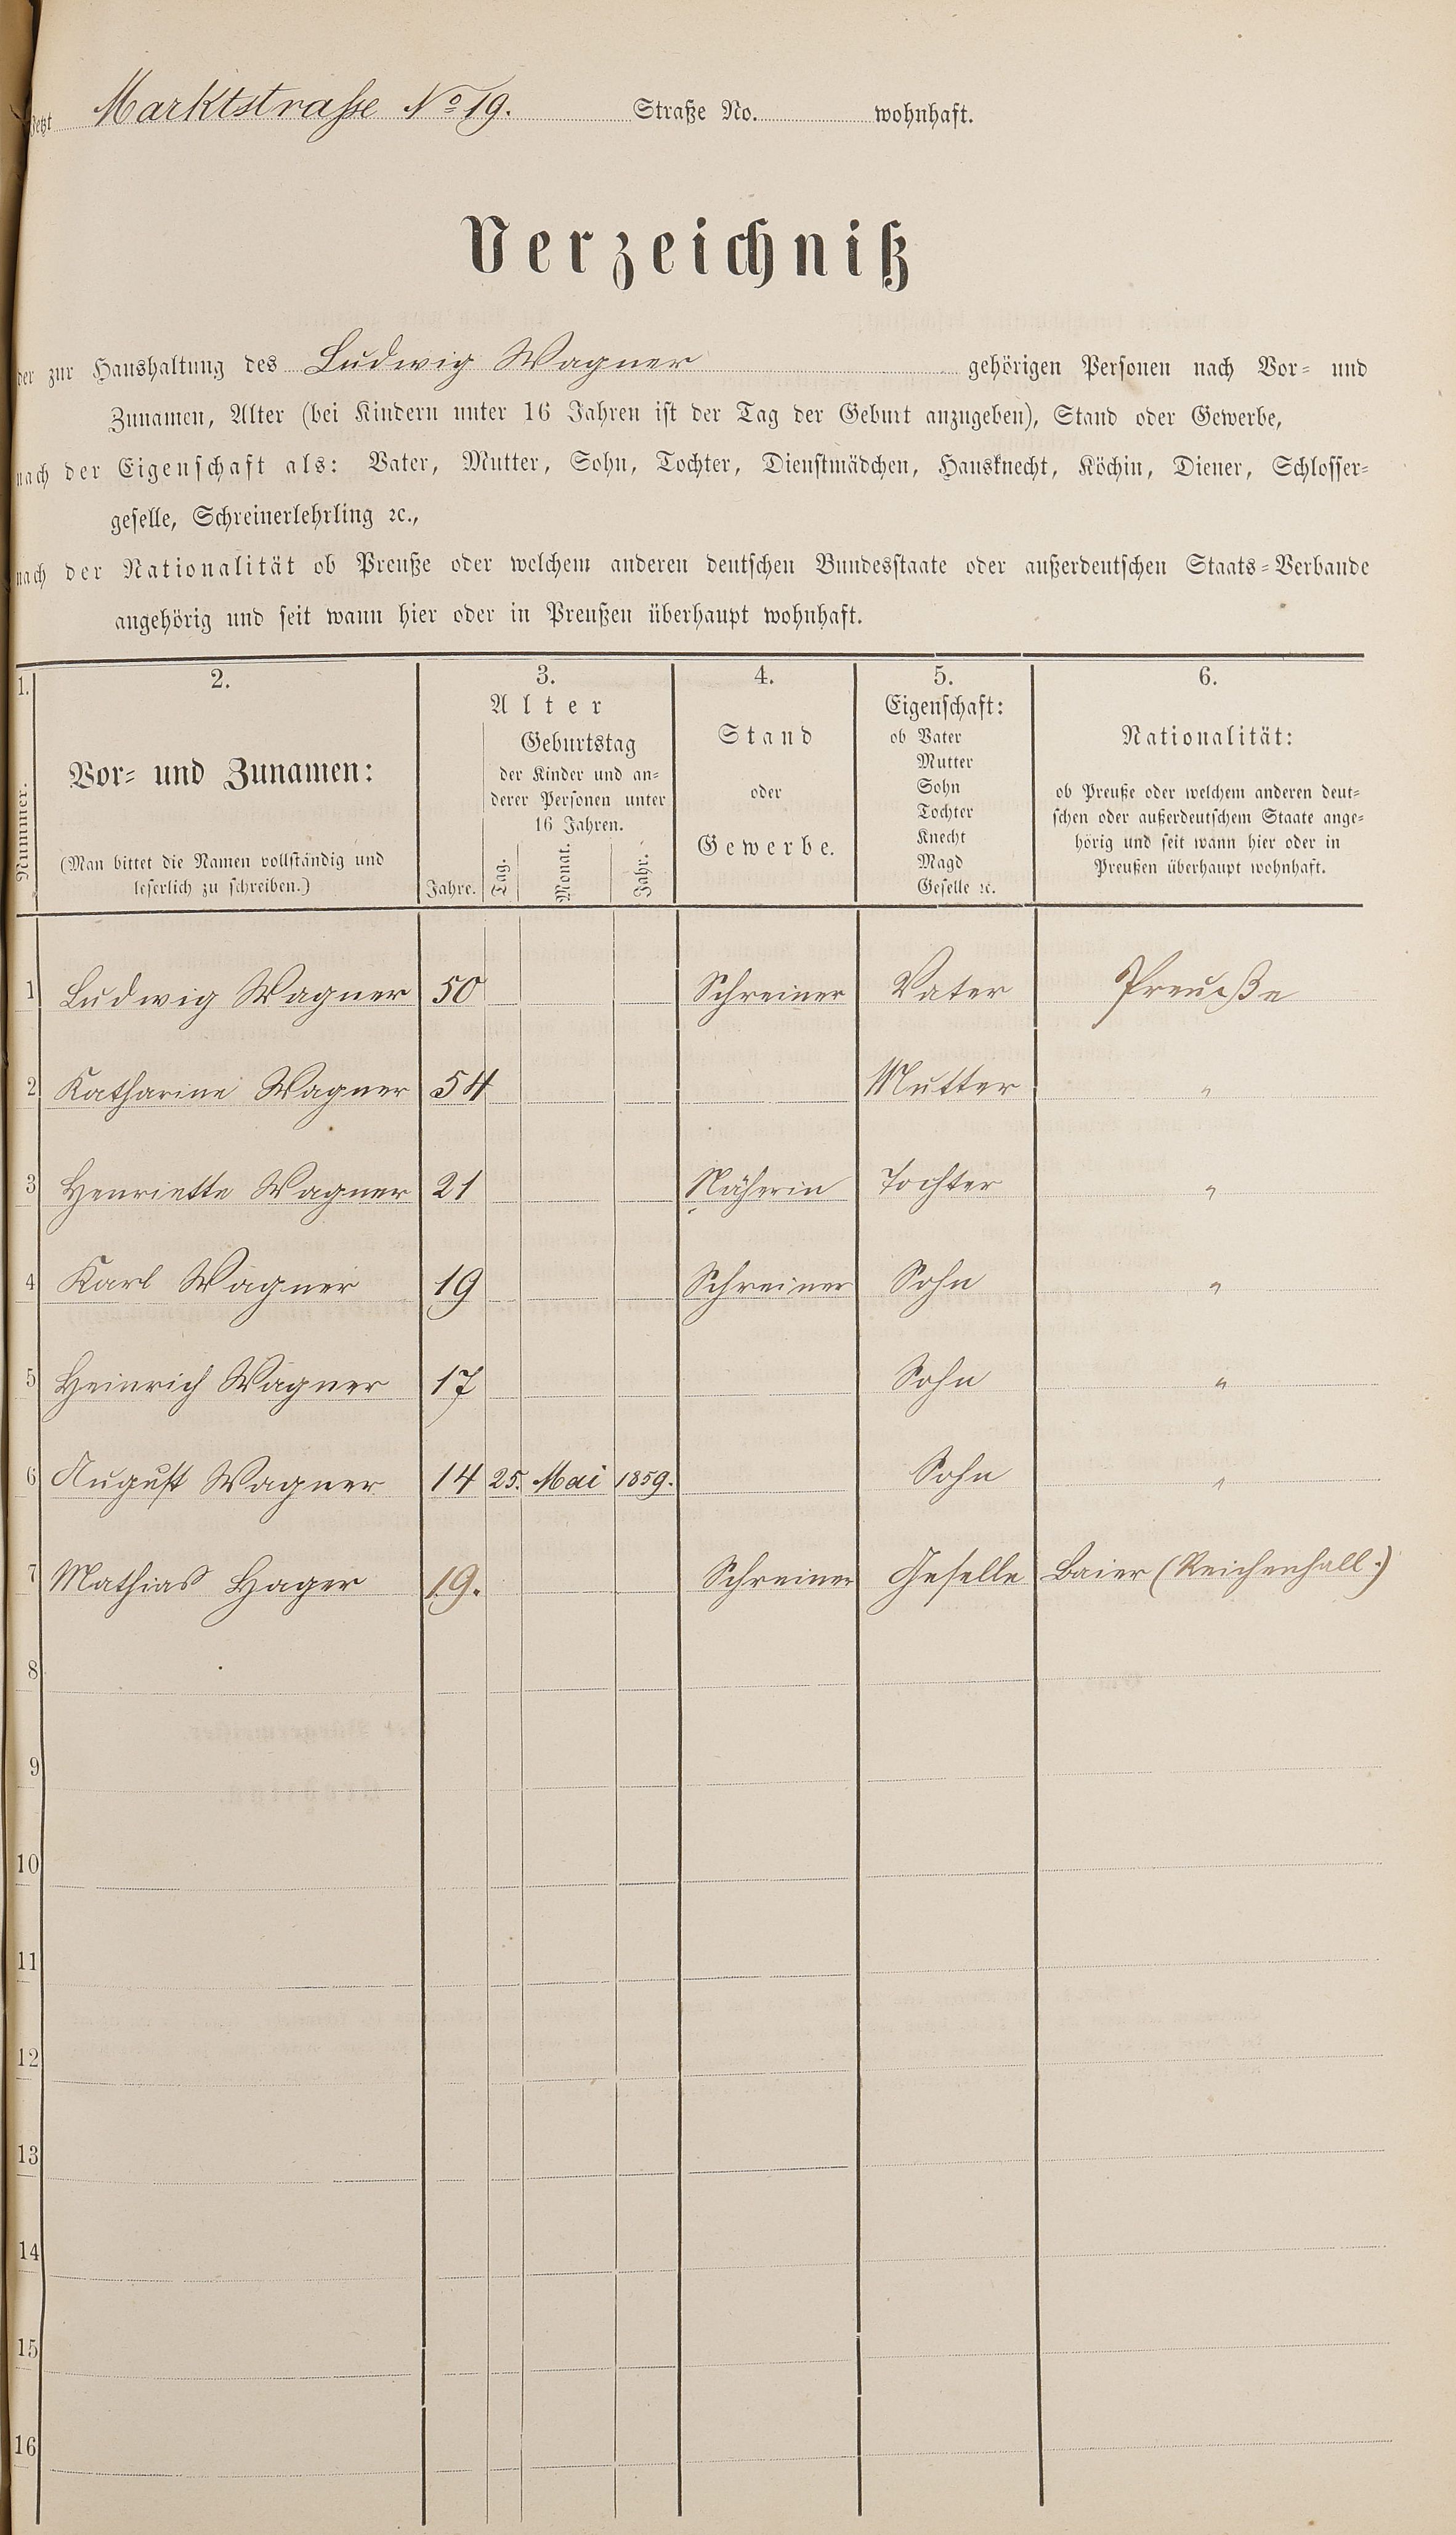 Jetzt Marktstraße No 19. Straße No. wohnhaft.
Verzeichniß
der zur Haushaltung des Ludwig Wagner gehörigen Personen nach Vor- und
Zunamen, Alter (bei Kindern unter 16 Jahren ist der Tag der Geburt anzugeben), Stand oder Gewerbe,
nach der Eigenschaft als: Vater, Mutter, Sohn, Tochter, Dienstmädchen, Hausknecht, Köchin, Diener, Schlosser-
geselle, Schreinerlehrling ꝛc.,
nach der Nationalität ob Preuße oder welchem anderen deutschen Bundesstaate oder außerdeutschen Staats-Verbande
angehörig und seit wann hier oder in Preußen überhaupt wohnhaft.
1. 2. 3. 4. 5. 6.
Nummer.
Vor- und Zunamen:
(Man bittet die Namen vollständig und
leserlich zu schreiben.)
Alter
Jahre.
Geburtstag
der Kinder und an-
derer Personen unter
16 Jahren.
Tag. Monat. Jahr.
Stand
oder
Gewerbe.
Eigenschaft:
ob Vater
Mutter
Sohn
Tochter
Knecht
Magd
Geselle ꝛc.
Nationalität:
ob Preuße oder welchem anderen deut-
schen oder außerdeutschem Staate ange-
hörig und seit wann hier oder in
Preußen überhaupt wohnhaft.
1 Ludwig Wagner 50 Schreiner Vater Preuße
2 Katharine Wagner 54 Mutter "
3 Henriette Wagner 21 Näherin Tochter "
4 Karl Wagner 19 Schreiner Sohn "
5 Heinrich Wagner 17 Sohn "
6 August Wagner 14 25. Mai 1859. Sohn "
7 Mathias Hager 19. Schreiner Geselle Baier (Reichenhall.)
8
9
10
11
12
13
14
15
16